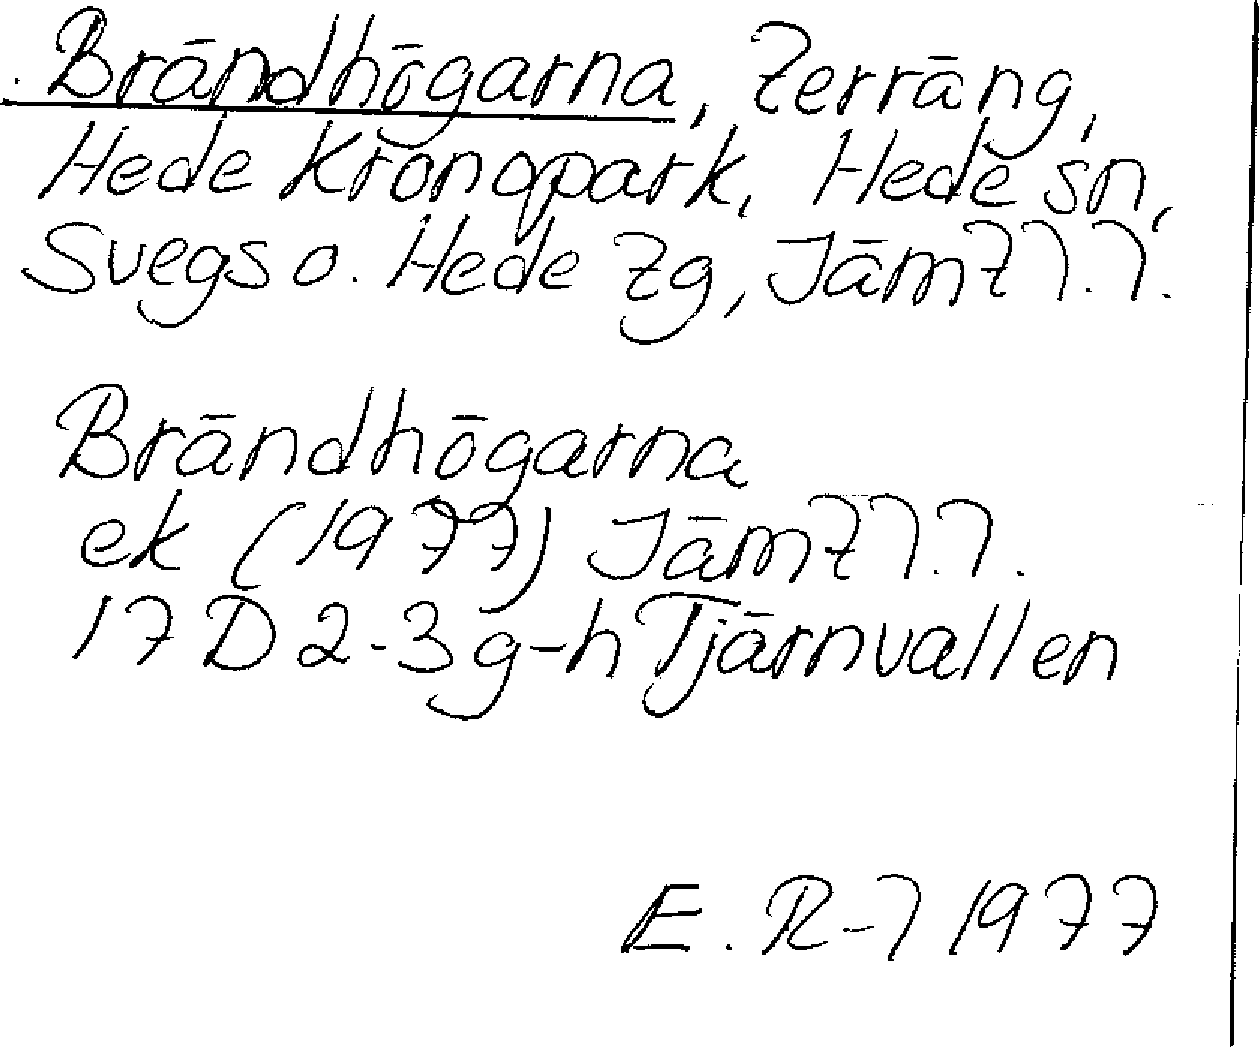 Brändhögarna, terräng,
Hede Kronopark, Hede sn,
Svegs o. Hede tg, Jämtl.l.
Brändhögarna
ek (1977) Jämtl.l.
17D2-3g-h Tjärnvallen
E. R-l 1977